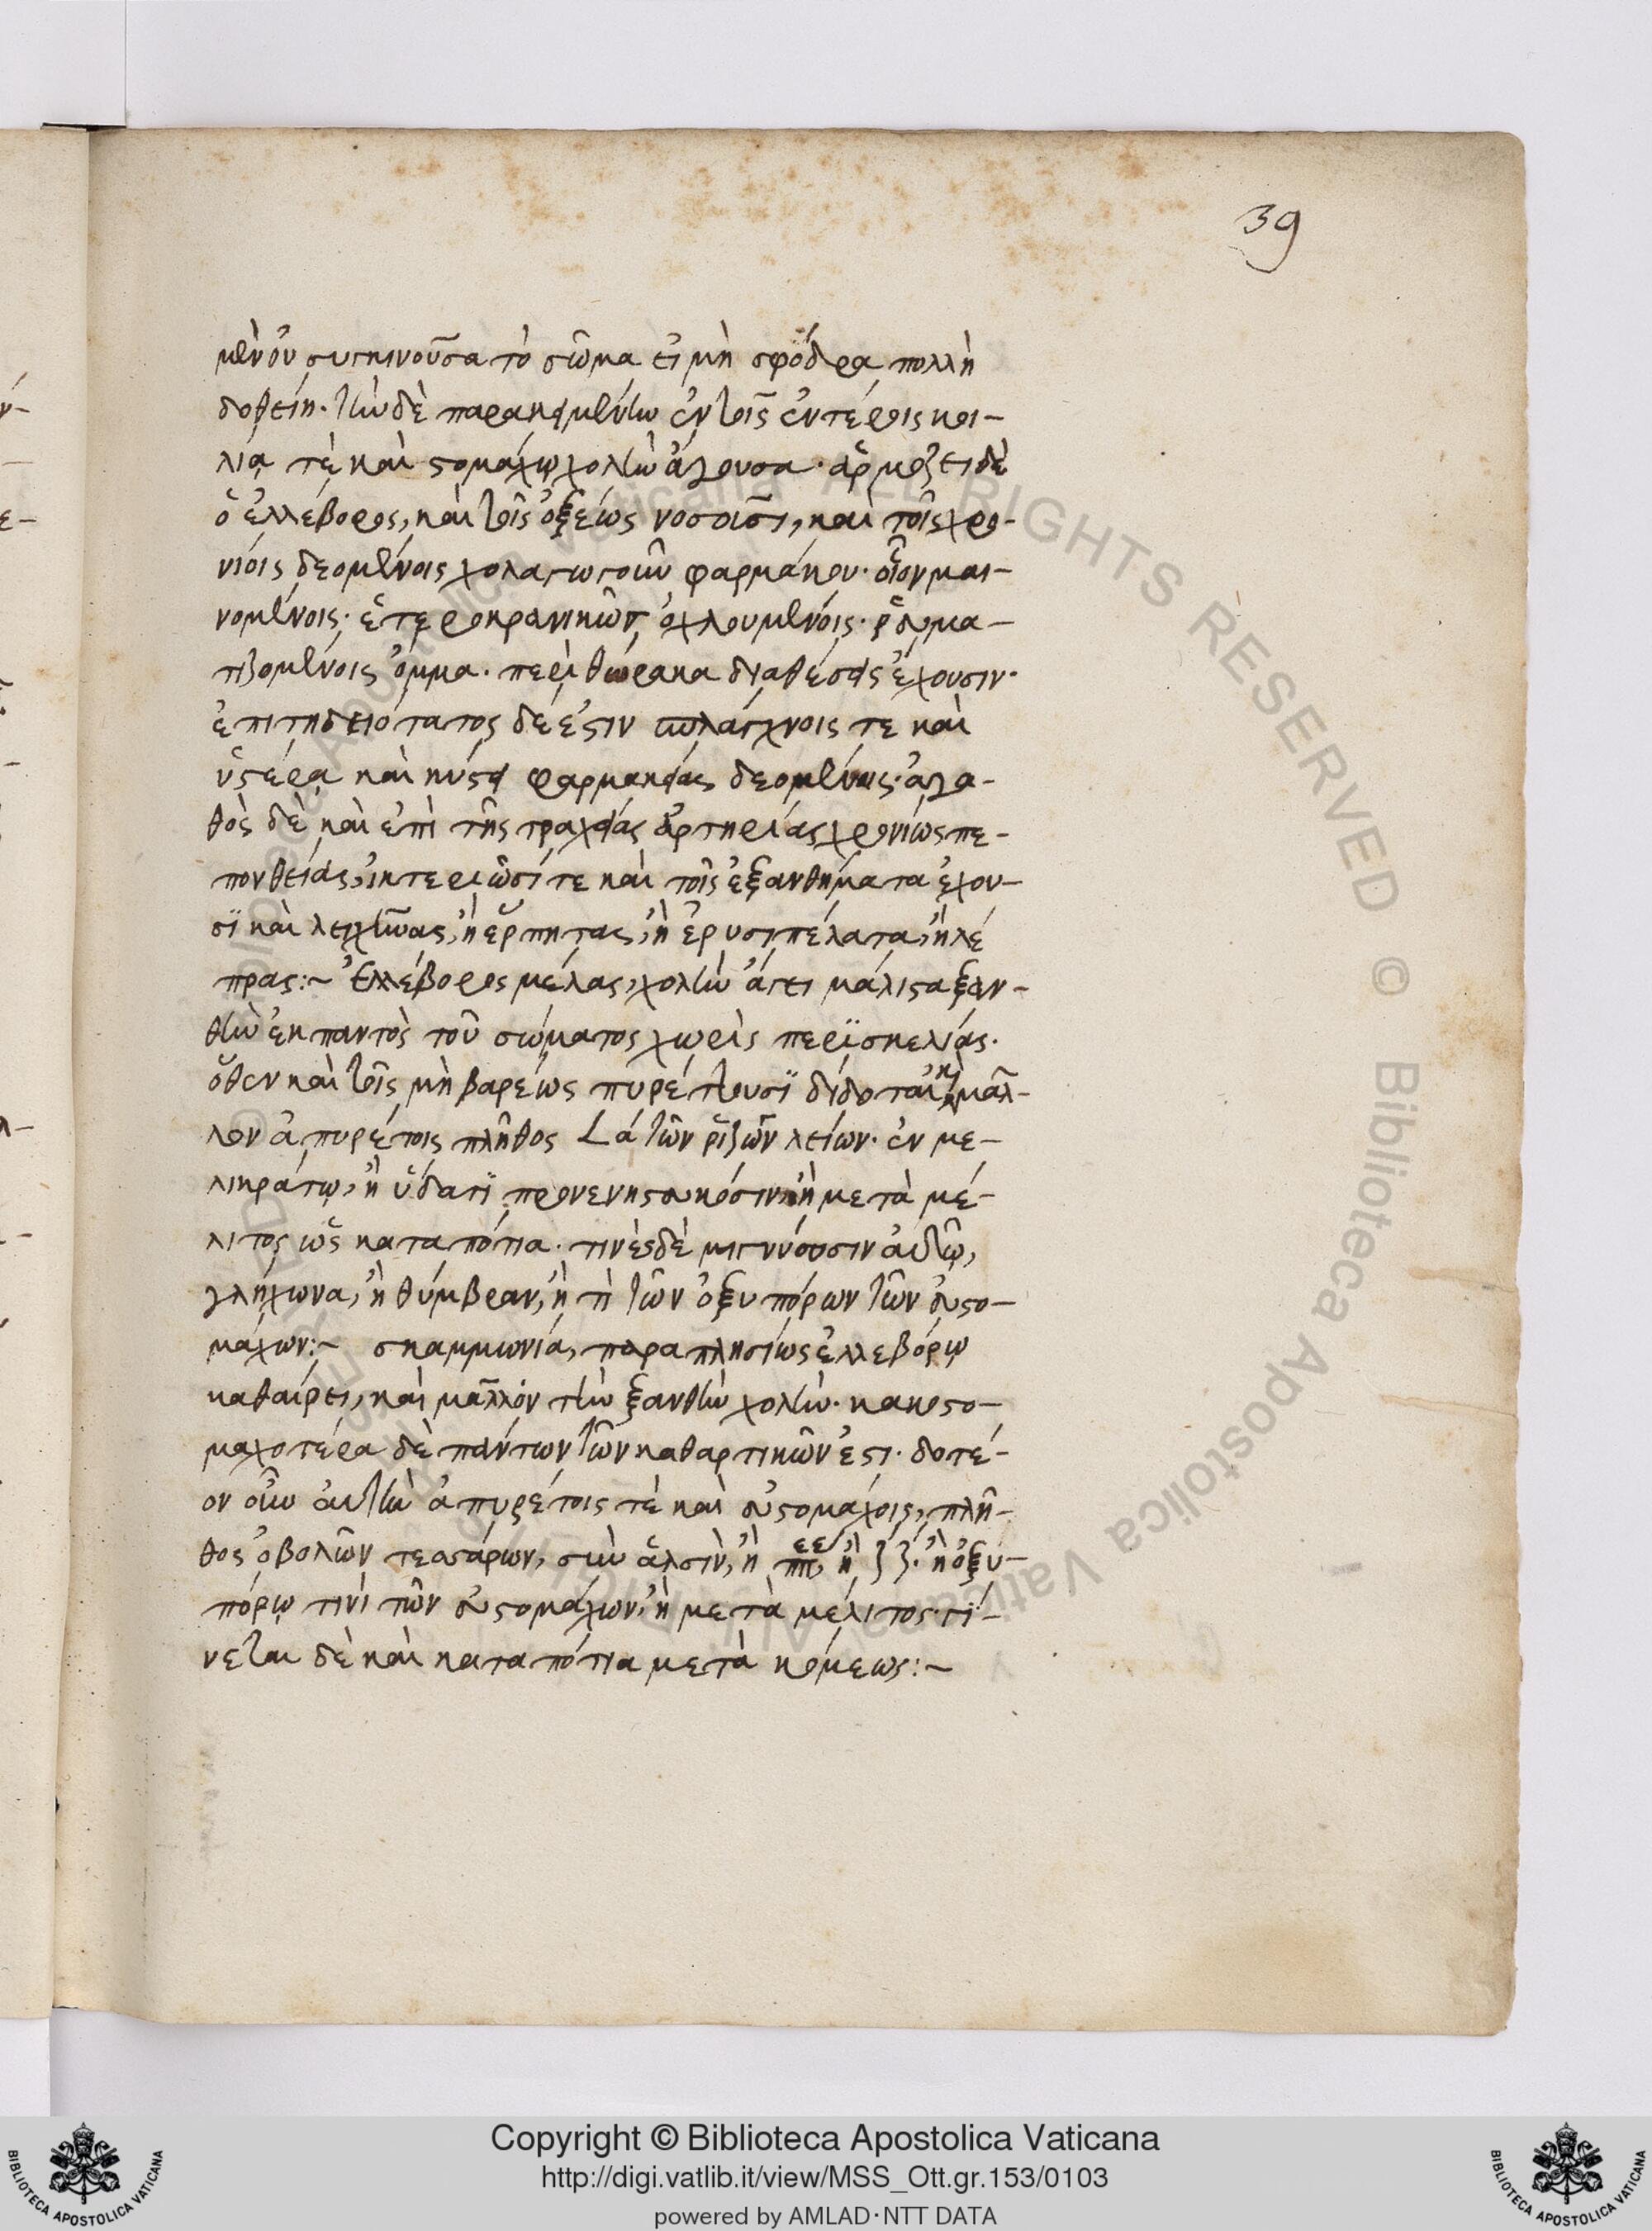 39
μὲν οὖν συγκινοῦσα τὸ σῶμα εἰ μὴ σφόδρα πολλὴ
δοθείη· τὴν δὲ παρακειμένην ἐν τοῖς ἐντέροις κοι-
λία τὲ καὶ στομάχῳ χολὴν ἄγουσα· ἁρμόζει δὲ
ὁ ἐλλέβορος, καὶ τοῖς ὀξέως νοσοῦσι, καὶ τοῖς χρο-
νίοις δεομένοις χολαγωγοῦ φαρμάκου· οἷον μαι-
νομένοις· ἑτεροκρανικῶς ὀχλουμένοις· ῥευμα-
τιζομένοις ὄμμα· περὶ θώρακα διαθέσεις ἔχουσιν·
ἐπιτηδειότατος δέ ἐστιν σπλάγχνοις τε καὶ
ὑστέρα καὶ κύστει φαρμακείας δεομένοις· ἀγα-
θὸς δὲ καὶ ἐπὶ τῆς τραχείας ἀρτηρίας χρονίως πε-
πονθείας, ἰκτεριῶσί τε καὶ τοῖς ἐξανθήματα ἔχου-
σι καὶ λειχῆνας, ἢ ἕρπητας, ἢ ἐρυσιπέλατα, ἢ λέ
πρας:~ Ἐλλέβορος μέλας, χολὴν ἄγει μάλιστα ξαν-
θὴν ἐκ παντὸς τοῦ σώματος χωρὶς περισκελίας·
ὅθεν καὶ τοῖς μὴ βαρέως πυρέττουσι δίδοται καὶ μᾶλ-
λον ἀπυρέτοις πλῆθος ∠ ά τῶν ῥιζῶν λείων· ἐν με-
λικράτῳ, ἢ ὕδατι, προνενηστευκόσιν ἢ μετὰ μέ-
λιτος ὡς καταπότια· τινὲς δὲ μιγνύουσιν αὐτῷ,
γλήχωνα, ἢ θύμβραν, ἢ τὶ τῶν ὀξυπόρων τῶν εὐστο-
μάχων:~ σκαμμωνία, παραπλησίως ἐλλεβόρῳ
καθαίρει, καὶ μᾶλλον τὴν ξανθὴν χολὴν· κακοστο-
μαχοτέρα δὲ πάντων τῶν καθαρτικῶν ἐστι· δοτέ-
ον οὖν αὐτὴν ἀπυρέτοις τὲ καὶ εὐστομάχοις, πλῆ-
θος ὀβολῶν τεσσάρων, σὺν ἁλσὶν, ἢ πεπέρει, ἢ ζζ· ἢ ὀξυ-
πόρῳ τινὶ τῶν εὐστομάχων, ἢ μετὰ μέλιτος· γί-
νεται δὲ καὶ καταπότια μετὰ κόμεως:~
Copyright © Biblioteca Apostolica Vaticana
http://digi.vatlib.it/view/MSS_Ott.gr.153/0103
powered by AMLAD·NTT DATA